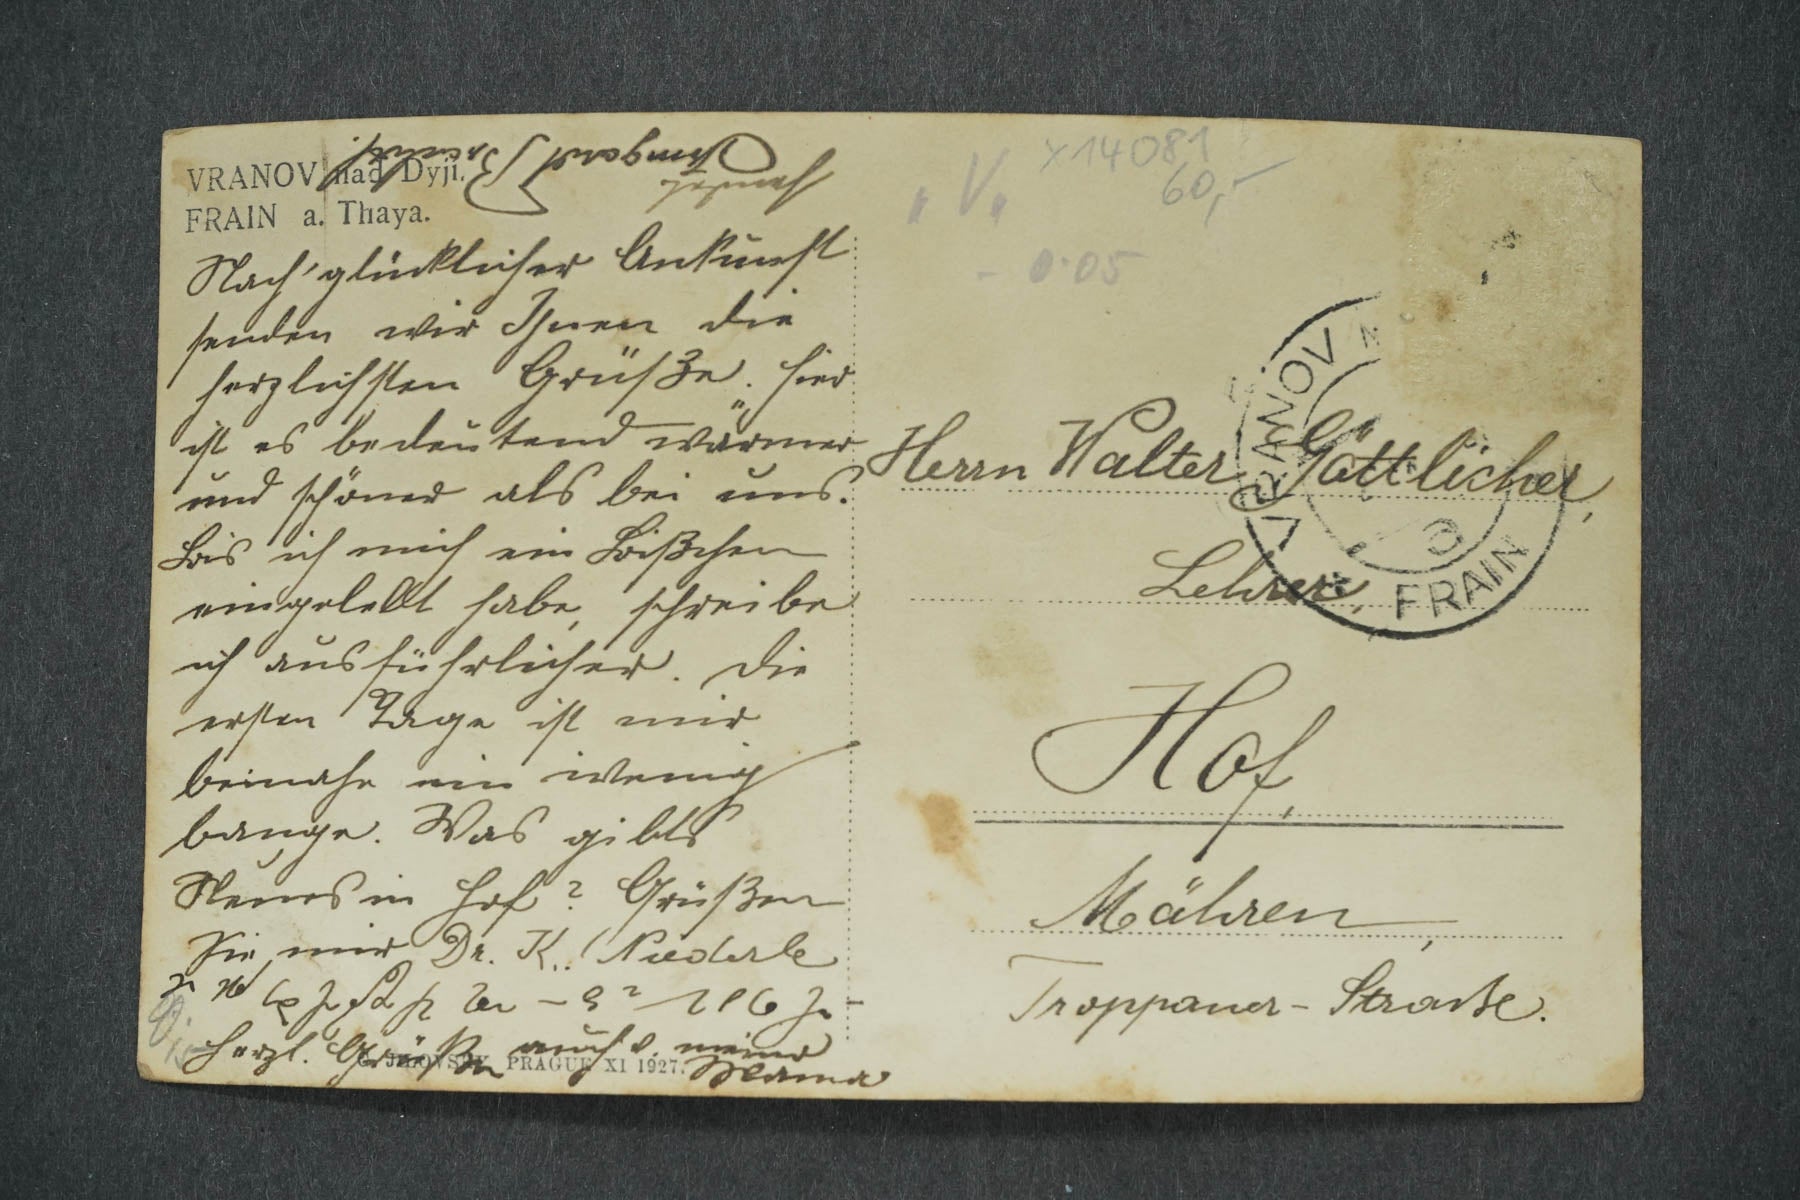 VRANOV nad Dyjí.
FRAIN a. Thaya.
Nach glücklicher Ankunft
senden wir Ihnen die
herzlichsten Grüße. Hier
ist es bedeutend wärmer
und schöner als bei uns.
Bis ich mich ein Bißchen
eingelebt habe, schreibe
ich ausführlicher. Die
ersten Tage ist mir
beinahe ein wenig
bange. Was gibts
Neues in Hof? Grüßen
Sie mir Dr. K. Niederle
herzl. Grüße auch v. meiner
Mama
Irmgard
PRAGUE XI 1927.
"V"
x14081
60,-
- 0·05
VRANOV N
FRAIN
Herrn Walter Göttlicher,
Lehrer,
Hof,
Mähren,
Troppauer-Strasse.